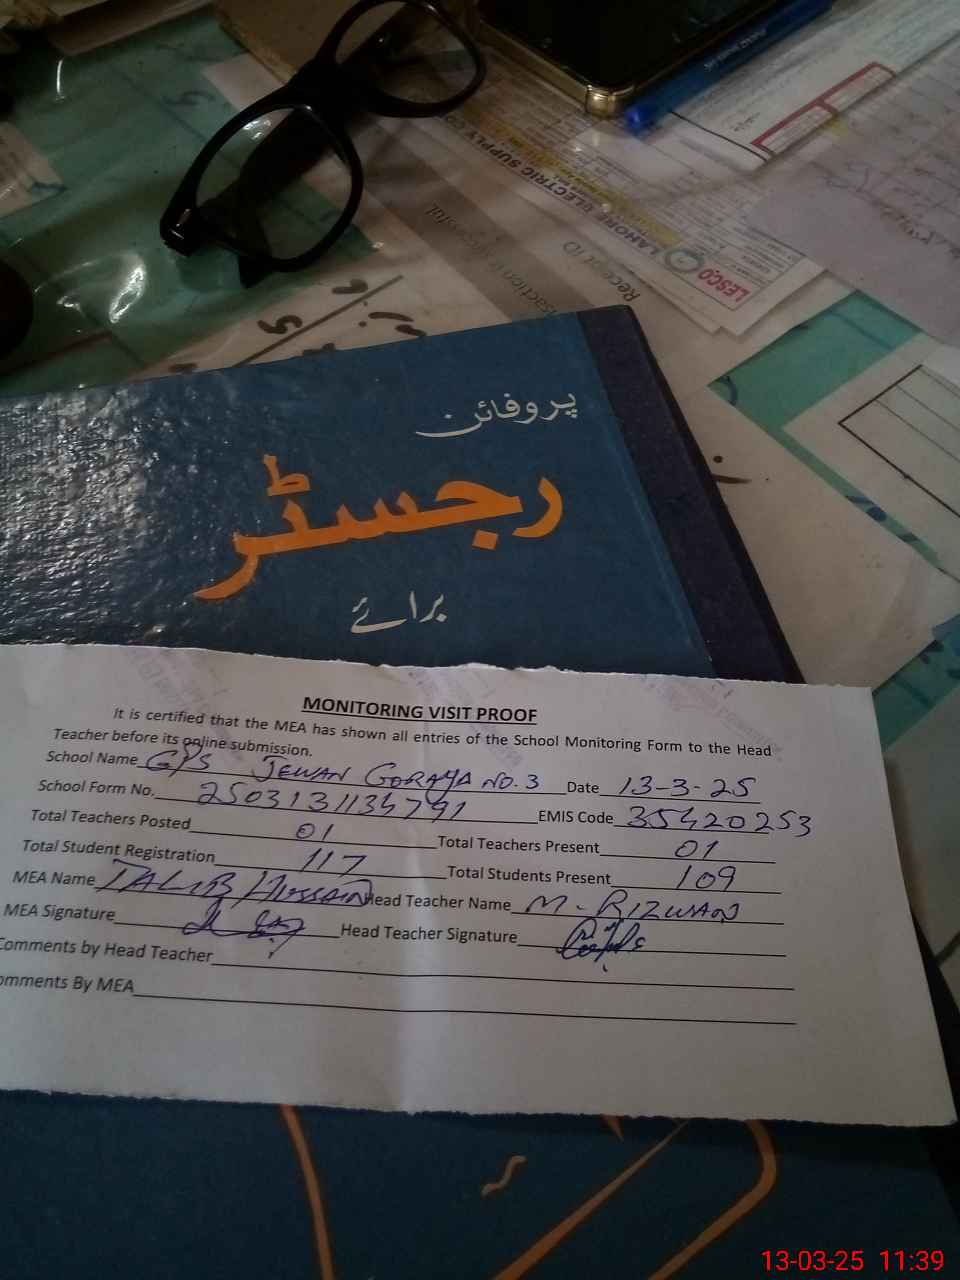 LAHORE ELECTRIC SUPPLY CO
LESCO
Recent ID
پروفائن
رجسٹر
برائے
MONITORING VISIT PROOF
It is certified that the MEA has shown all entries of the School Monitoring Form to the Head
Teacher before its online submission.
School Name GPS JEWAN GORAYA NO. 3 Date 13-3-25
School Form No. 25031311134791 EMIS Code 35420253
Total Teachers Posted 01 Total Teachers Present 01
Total Student Registration 117 Total Students Present 109
MEA Name TALIB HUSSAIN Head Teacher Name M. RIZWAN
MEA Signature Head Teacher Signature
Comments by Head Teacher
omments By MEA
13-03-25 11:39